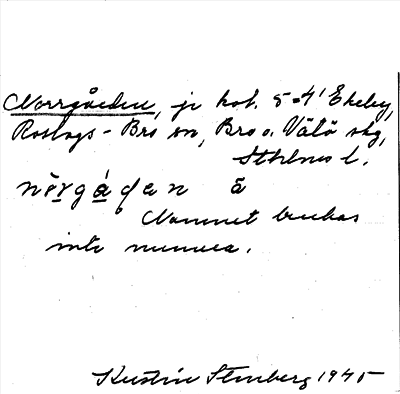 Norrgården, je kat. 5-4' Ekeby,
Roslags-Bro sn, Bro o. Vätö skg,
Sthlms l.
nòrgá̊ḍan å
Namnet brukas
inte numera.
Kerstin Stenberg 1945